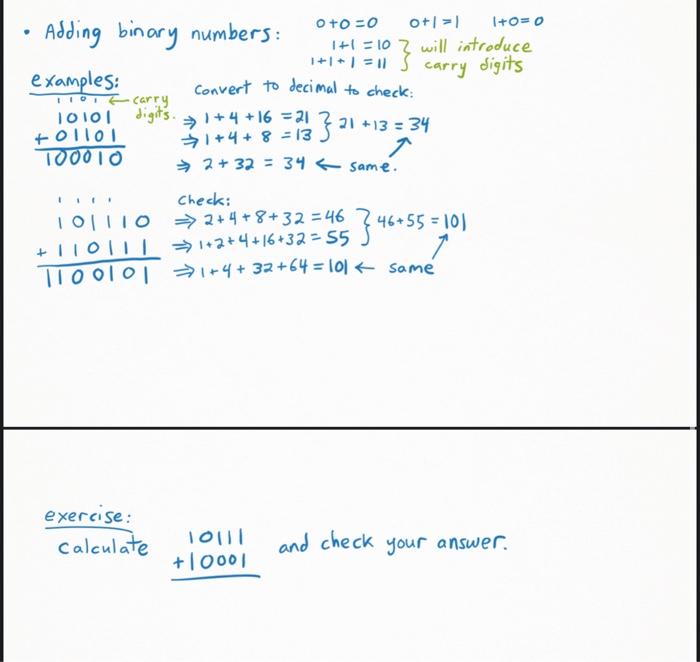 • Adding binary numbers: 0+0=0 0+1=1 1+0=0
1+1=10 } will introduce
1+1+1=11 } carry digits
examples: Convert to decimal to check:
1 1 0 1 ← carry digits.
10101 ⇒ 1+4+16=21 } 21+13=34
+01101 ⇒ 1+4+8=13
100010 ⇒ 2+32=34 ← same.
1 1 1 1 Check:
101110 ⇒ 2+4+8+32=46 } 46+55=101
+110111 ⇒ 1+2+4+16+32=55
1100101 ⇒ 1+4+32+64=101 ← same
exercise:
Calculate 10111 and check your answer.
+10001